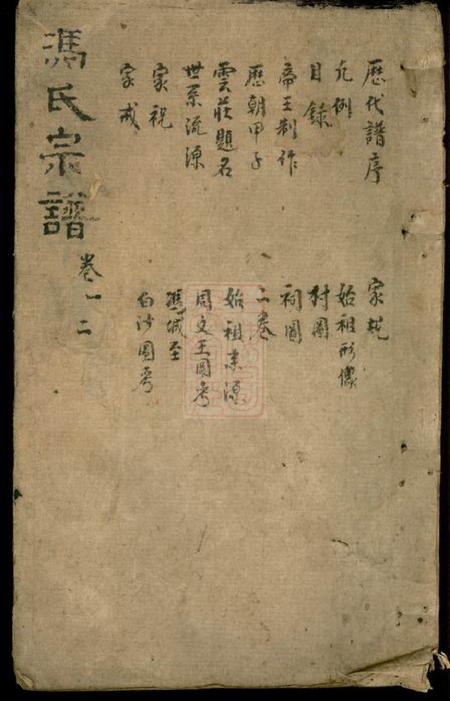 馮氏宗譜
卷一 二
歷代譜序
凡例
目錄
帝王制作
歷朝甲子
雲莊題名
世系流源
家祝
家戒
家
始祖形像
村圖
祠圖
二卷
始祖来源
周文王圖考
馮城至
白沙圖考